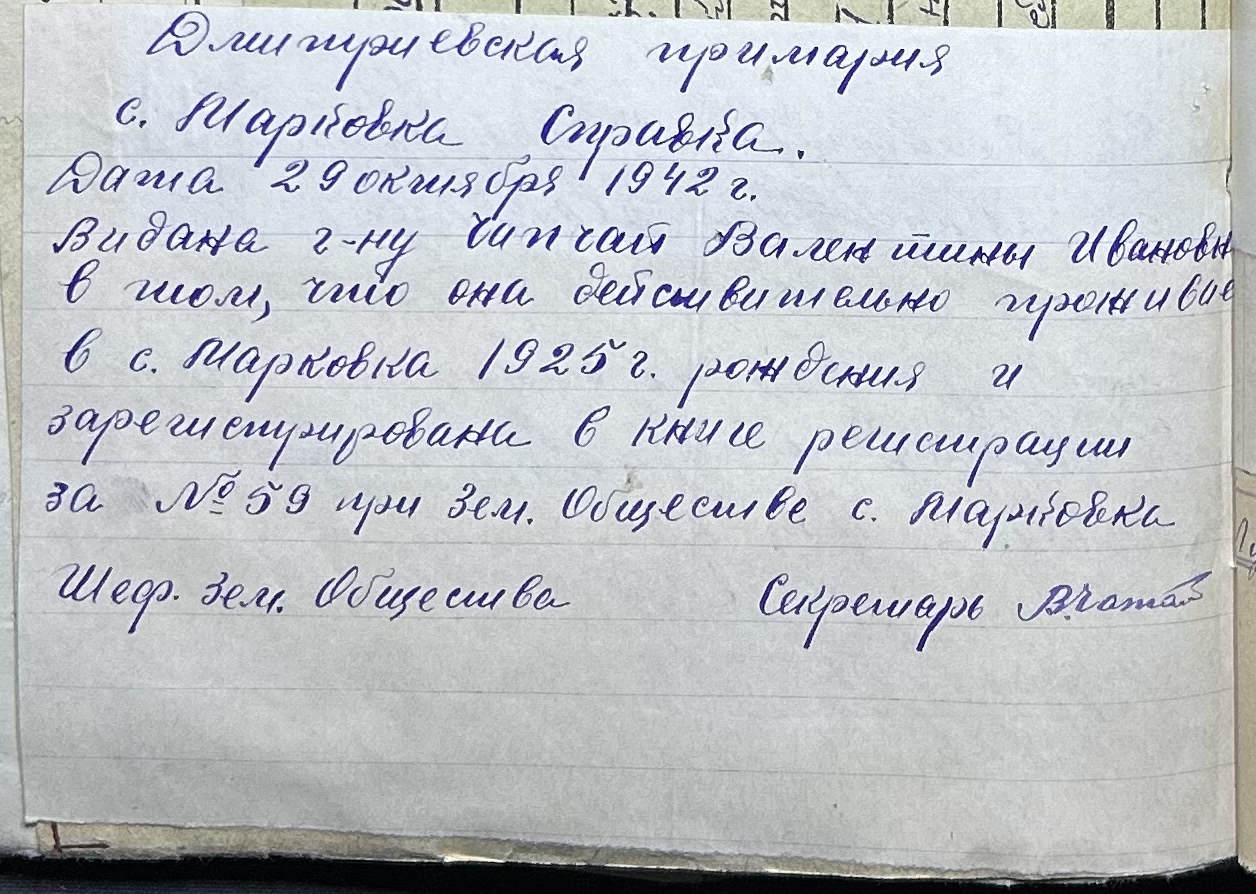 Дмитриевская примария
с. Марковка Справка.
Дата 29 октября 1942 г.
Видана г-ну Чипчай Валентины Ивановн
в том, что она действительно проживае
в с. Марковка 1925 г. рождения и
зарегистрирована в книге регистрации
за № 59 при Зем. Обществе с. Марковка
Шеф. Зем. Общества Секретарь